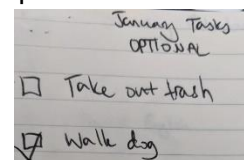 January Tasks
OPTIONAL
Take out trash
Walk dog